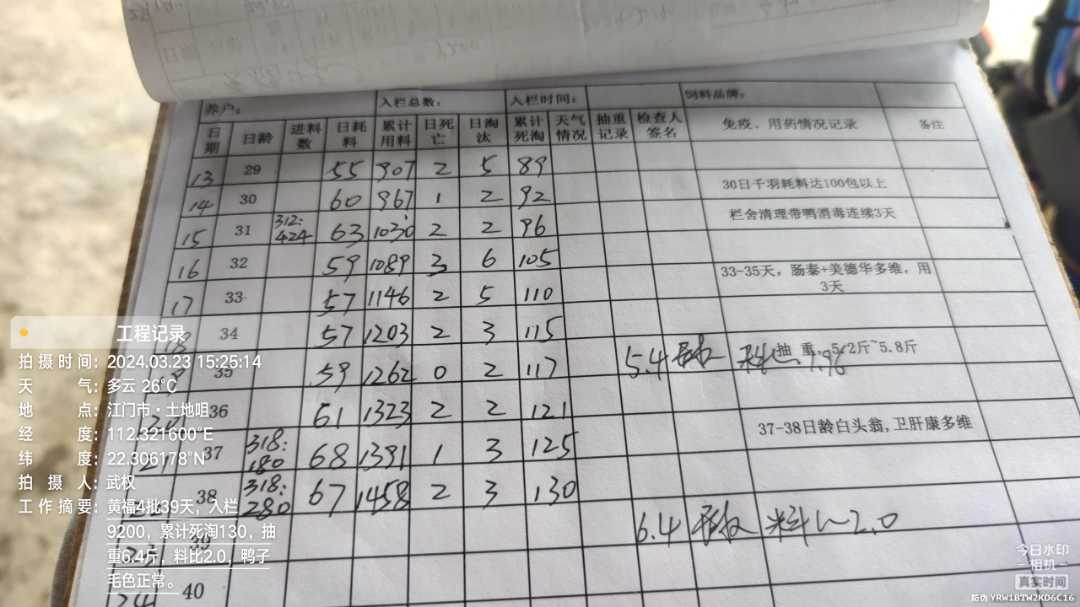 养户： 入栏总数： 入栏时间： 饲料品牌：
日期 日龄 进料数 日耗料 累计用料 日死亡 日淘汰 累计死淘 天气情况 抽重记录 检查人签名 免疫、用药情况记录 备注
13 29 55 907 2 5 89
14 30 60 967 1 2 92 30日千羽耗料达100包以上
15 31 312: 424 63 1030 2 2 96 栏舍清理带鸭消毒连续3天
16 32 59 1089 3 6 105
17 33 57 1146 2 5 110 33-35天，肠泰+美德华多维，用3天
18 34 57 1203 2 3 115
35 59 1262 0 2 117 5.4 抽重：5.2斤~5.8斤
36 61 1323 2 2 121
37 318: 180 68 1391 1 3 125 37-38日龄白头翁，卫肝康多维
38 318: 280 67 1458 2 3 130
39 6.4 料 2.0
24 40
工程记录
拍摄时间：2024.03.23 15:25:14
天气：多云 26℃
地点：江门市·土地咀
经度：112.321600°E
纬度：22.306178°N
拍摄人：武权
工作摘要：黄福4批39天，入栏
9200，累计死淘130，抽
重6.4斤，料比2.0，鸭子
毛色正常。
今日水印
相机
真实时间
防伪 YRW1BTW2KD6C16